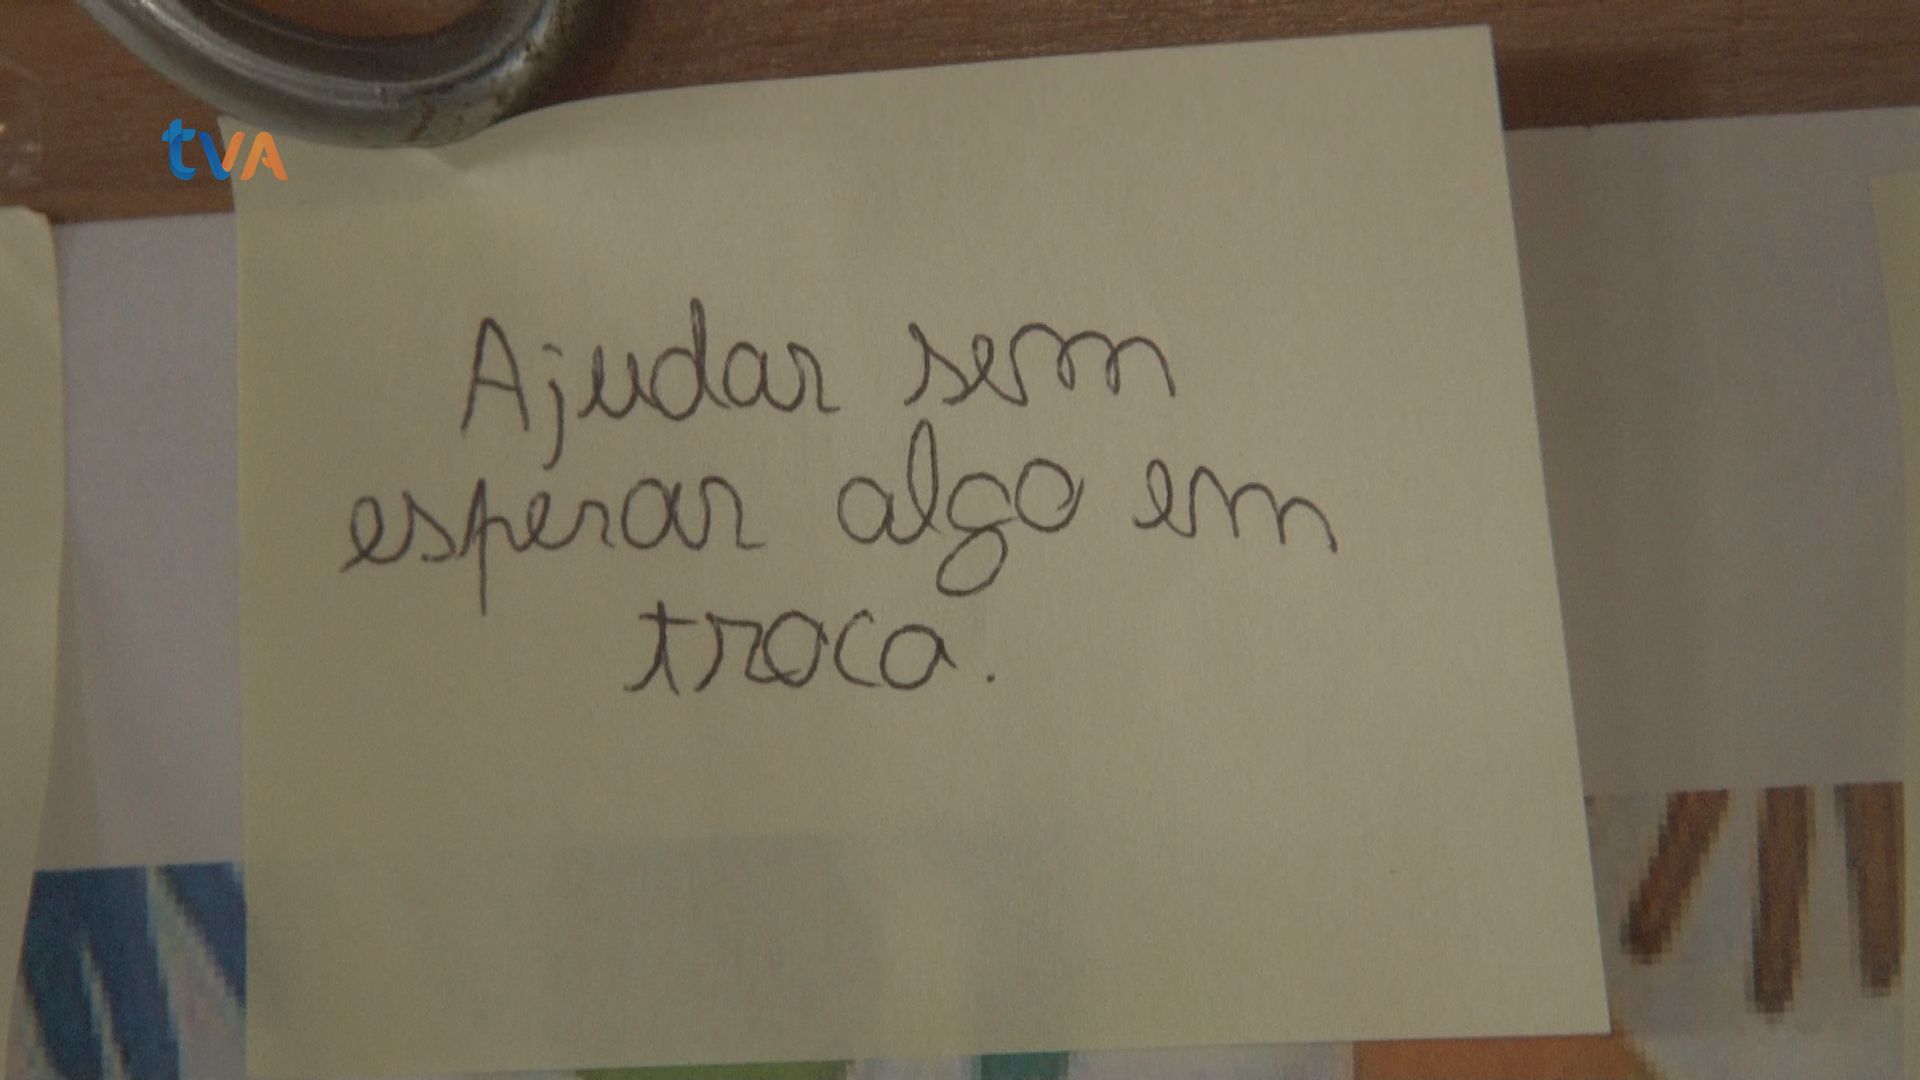 tvA
Ajudar sem
esperar algo em
troca.